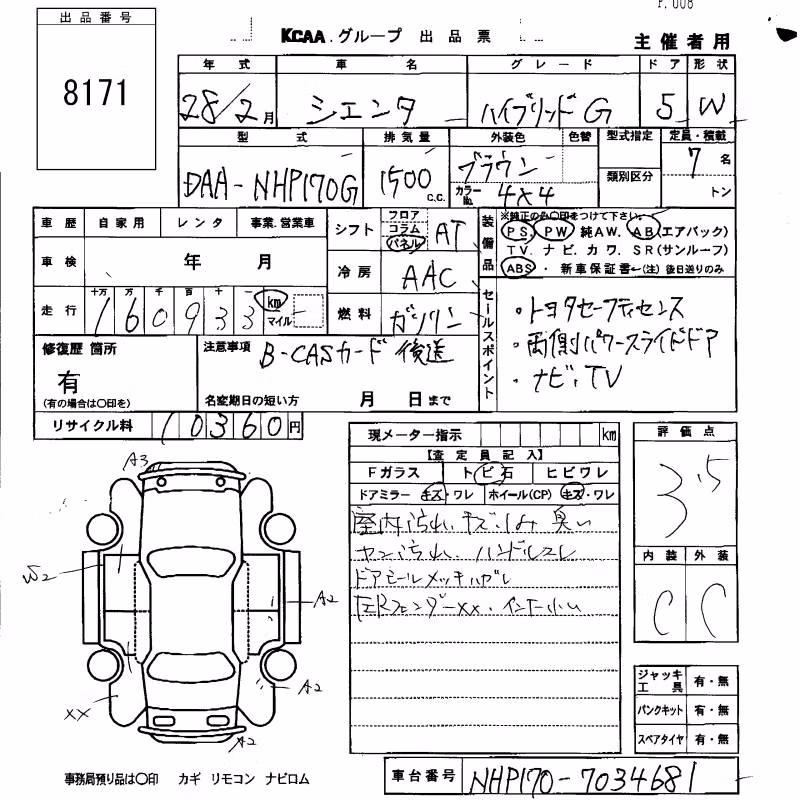 P.008
出品番号
8171
KCAA.グループ 出品票
主催者用
年式 車名 グレード ドア 形状
28/2月 シエンタ ハイブリッドG 5 W
型式 排気量 外装色 色替 型式指定 定員・積載
DAA-NHP170G 1500 c.c. ブラウン 7名
類別区分
カラーNo. 4X4 トン
車歴 自家用 レンタ 事業.営業車
車検 年 月
走行 十万 万 千 百 十 一
160933 km
マイル
シフト フロア コラム パネル AT
冷房 AAC
燃料 ガソリン
装備品
※純正のみ〇印をつけて下さい。
PS. PW 純AW. AB(エアバック)
TV. ナビ. カワ. SR(サンルーフ)
ABS・新車保証書←(注)後日送りのみ
セールスポイント
・トヨタセーフティセンス
・両側パワースライドドア
・ナビ、TV
修復歴 箇所
有
(有の場合は〇印を)
注意事項
B-CASカード 後送
名変期日の短い方 月 日まで
リサイクル料 10360円
現メーター指示 km
【査定員記入】
Fガラス トビ石 ヒビワレ
ドアミラー キズ・ワレ ホイール(CP) キズ・ワレ
室内汚れ、キズ、シミ 臭い
ハンドルスレ
ドアモールメッキハガレ
評価点
3.5
内装 外装
C C
A3
W2
A2
A2
XX
A2
ジャッキ工具 有・無
パンクキット 有・無
スペアタイヤ 有・無
事務局預り品は〇印 カギ リモコン ナビロム
車台番号 NHP170-7034681